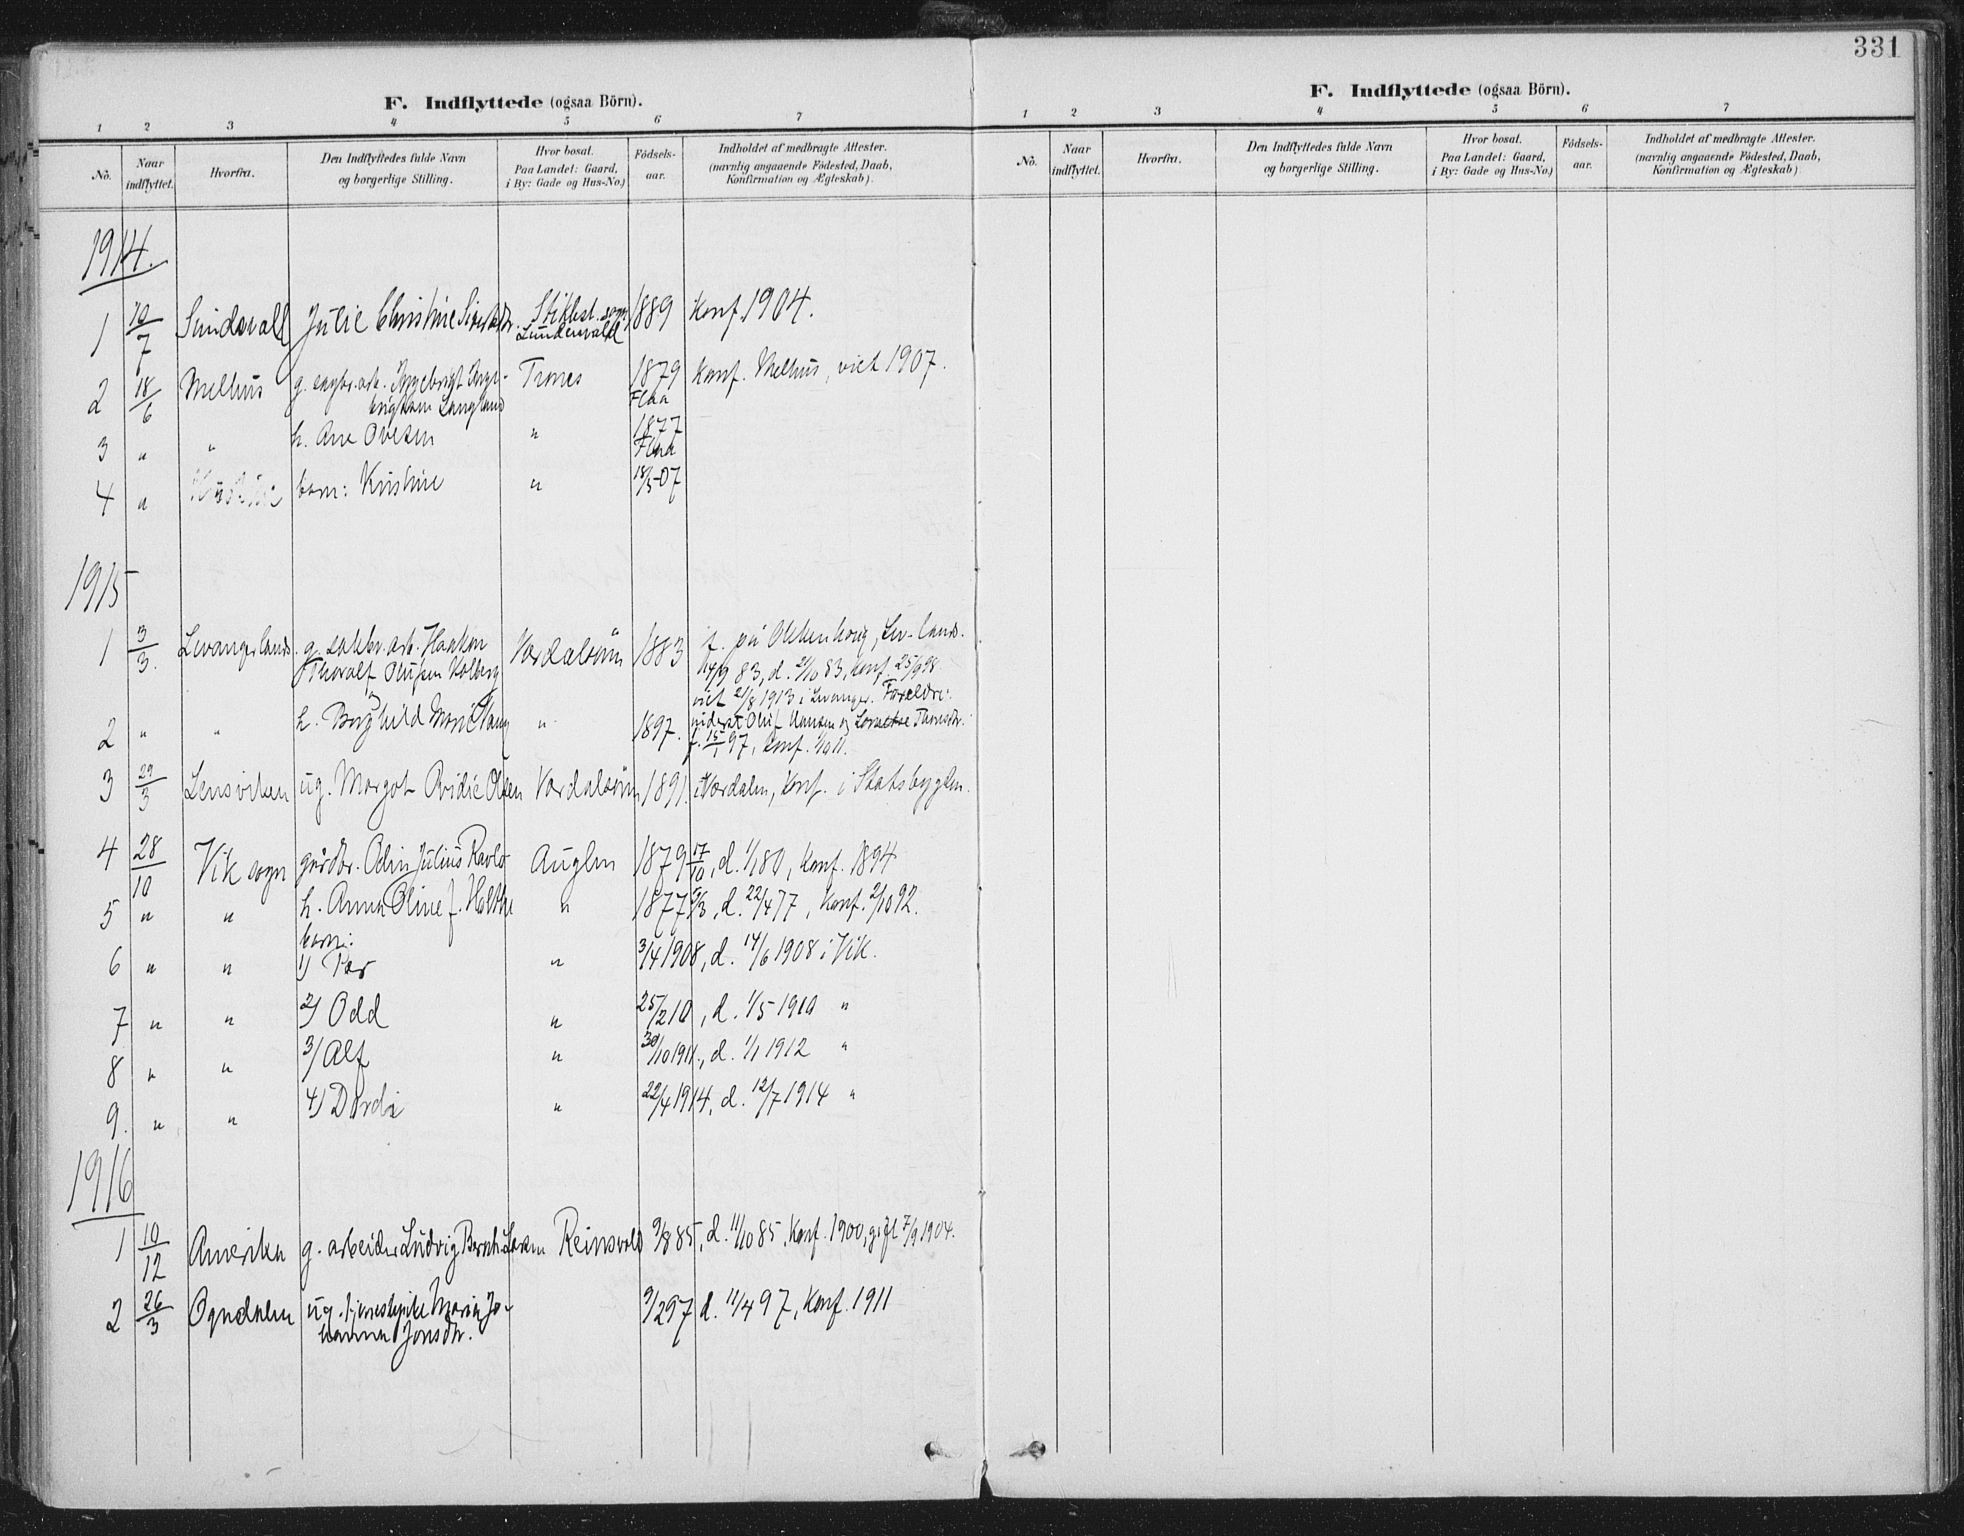 331
F. Indflyttede (ogsaa Börn).
1 2 3 4 5 6 7
No. Naar indflyttet. Hvorfra. Den Indflyttedes fulde Navn og borgerlige Stilling. Hvor bosat. Paa Landet: Gaard, i By: Gade og Hus-No.) Födsels-aar. Indholdet af medbragte Attester. (navnlig angaaende Födested, Daab, Konfirmation og Ægteskab).
1914.
1 10/7 Sundsvall Julie Christine Stiklest. sogn 1889 Konf. 1904.
2 18/6 Melhus g. Ingebrigt Inge- Trones 1879 Konf. Melhus, viet 1907.
brigtsen Langland Flaa
3 " " h. Ane Ovesen " 1877
Flaa
4 " barn: Kristine " 18/5 07
1915
1 3/3. Levangerlands. g. arb. Haakon Værdalsøra 1883 f. på Okkenhaug, Lev-lands.
Thoralf Olufsen Kolberg 14/9 83, d. 21/10 83, konf. 25/9 98
viet 21/8 1913 i Levanger. Forældre:
2 " " h. Borghild Marie " 1897. Oluf Hansen og
f. 15/1 97, Konf.
3 29/3 Lensviken ug. Margot Ovidie Olsen Værdalsøra 1891. i Værdalen, Konf. i Stadsbygden.
4 28/10 Vik sogn gårdbr. Odin Julius Ravlo Auglen 1879 17/10, d. 1/1 80, Konf. 1894
5 " " h. Anna Oline f. Holthe " 1877 6/3, d. 22/4 77, Konf. 2/10 92.
børn:
6 " " 1) Per " 3/4 1908, d. 14/6 1908 i Vik.
7 " " 2) Odd " 25/2 10, d. 1/5 1910 "
8 " " 3) Alf " 30/10 1911., d. 1/1 1912 "
9. " " 4) Dordi " 22/4 1914, d. 12/7 1914 "
1916
1 10/12 Amerika g. arbeider Ludvig Bernh. Larsen Reinsvold 9/8 85, d. 11/10 85, Konf. 1900, gift 7/9 1904.
2 26/3 Ogndalen ug. tjenestepike Maria Jo- 9/2 97 d. 11/4 97, Konf. 1911
hanna Jonsdtr.
F. Indflyttede (ogsaa Börn).
1 2 3 4 5 6 7
No. Naar indflyttet. Hvorfra. Den Indflyttedes fulde Navn og borgerlige Stilling. Hvor bosat. Paa Landet: Gaard, i By: Gade og Hus-No.) Födsels-aar. Indholdet af medbragte Attester. (navnlig angaaende Födested, Daab, Konfirmation og Ægteskab)